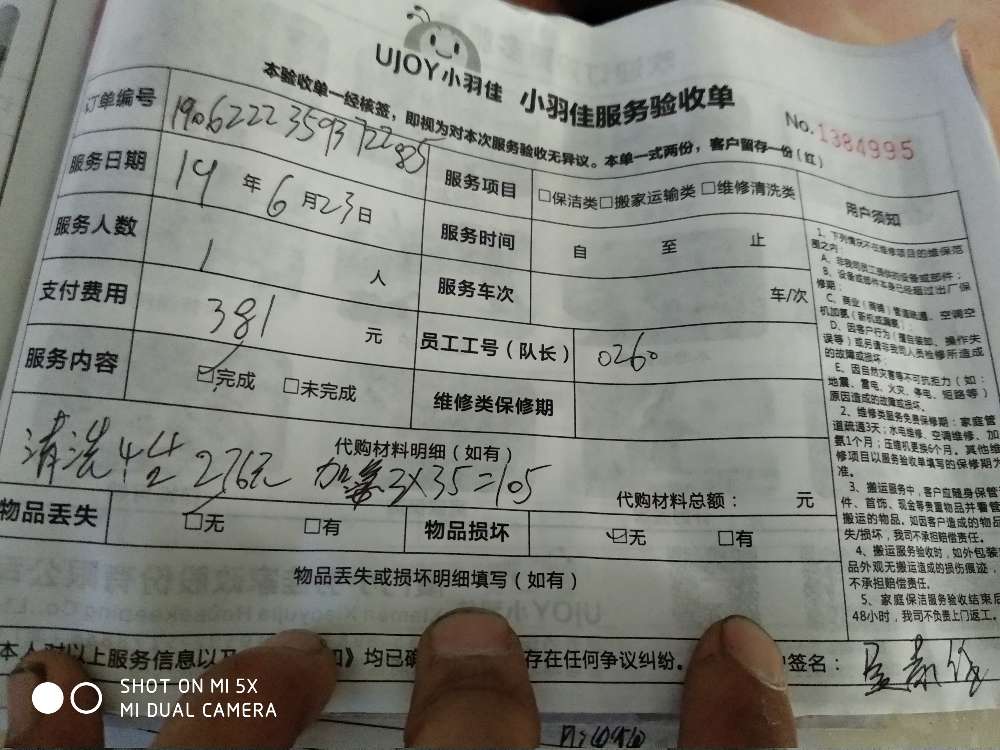 UJOY小羽佳 小羽佳服务验收单
本验收单一经核签，即视为对本次服务验收无异议。本单一式两份，客户留存一份（红）
No.1384995
订单编号 190622235937722485
服务日期 19年6月23日
服务项目 □保洁类□搬家运输类□维修清洗类
服务人数 1人
服务时间 自 至 止
服务车次 车/次
支付费用 381元
员工工号（队长） 0260
服务内容 ☑完成 □未完成
维修类保修期
代购材料明细（如有）
清洗4台 276元 加氨3X35=105
代购材料总额： 元
物品丢失 ☑无 □有
物品损坏 ☑无 □有
物品丢失或损坏明细填写（如有）
本人对以上服务信息以及 》均已确 存在任何争议纠纷。
签名：
用户须知
1、下列情况不在维修项目的维保范围之内：
A、非我司员工提供的设备或部件；
B、设备或部件本身已经超过出厂保修期；
C、商业（商铺）管道疏通、空调空机加氨（新机或漏氨）；
D、因客户行为（擅自装卸、操作失误等）或另请非我司人员检修所造成的故障或损坏
E、因自然灾害等不可抗拒力（如：地震、雷电、火灾、停电、短路等）原因造成的故障或损坏。
2、维修类服务免费保修期：家庭管道疏通3天；水电维修、空调维修、加氨1个月；压缩机更换6个月。其他维修项目以服务验收单填写的保修期为准。
3、搬运服务中，客户应随身保管证件、首饰、现金等贵重物品并看管搬运的物品。如因客户造成的物品丢失/损坏，我司不承担赔偿责任。
4、搬运服务验收时，如外包装物品外观无搬运造成的损伤痕迹，不承担赔偿责任。
5、家庭保洁服务验收结束后48小时，我司不负责上门返工。
SHOT ON MI 5X
MI DUAL CAMERA